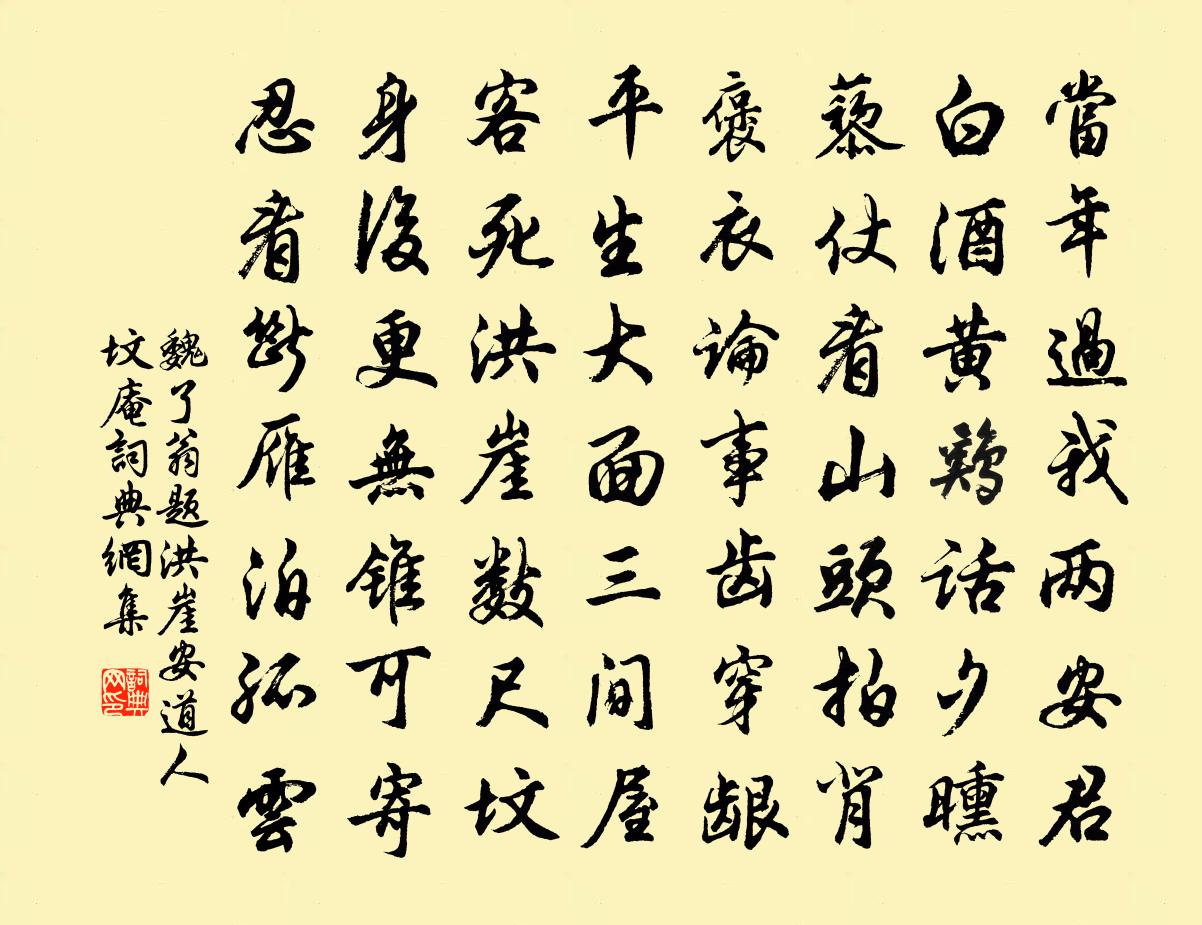 當年過我两安君
白酒黄鷄話夕曛
藜仗看山頭拍肖
褒衣論事齿穿龈
平生大面三间屋
客死洪崖数尺坟
身後更無錐可寄
忍看斷雁泊孤雲
魏了翁题洪崖安道人
坟庵詞典網集
詞典网印